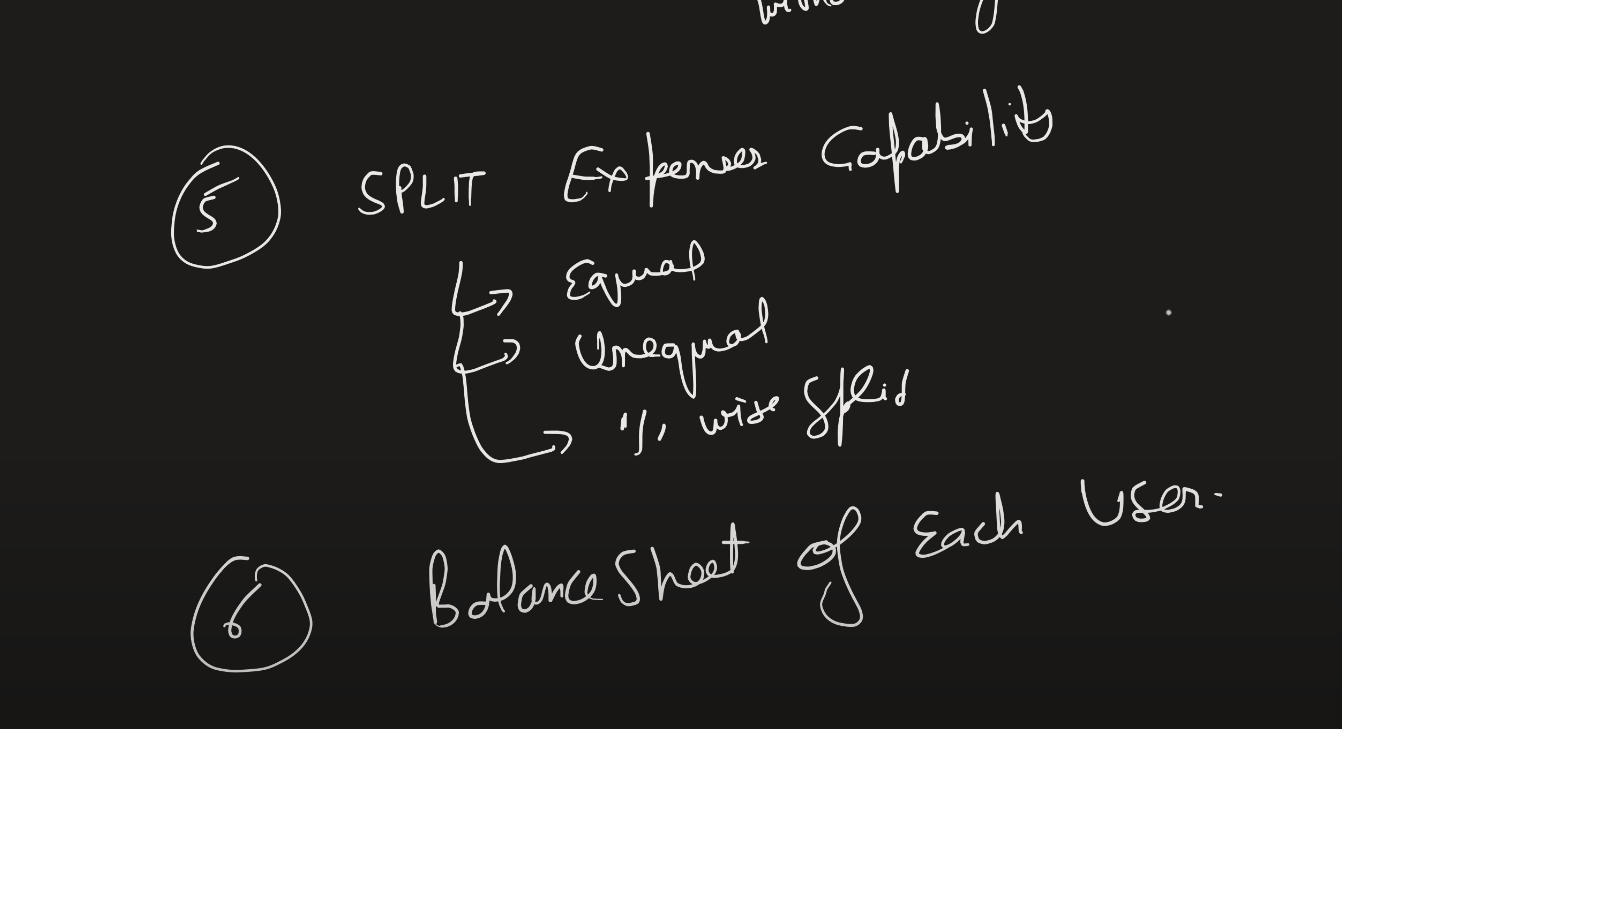 5 SPLIT Expenses Capability
Equal
Unequal
% wise Split
6 Balance Sheet of Each User.